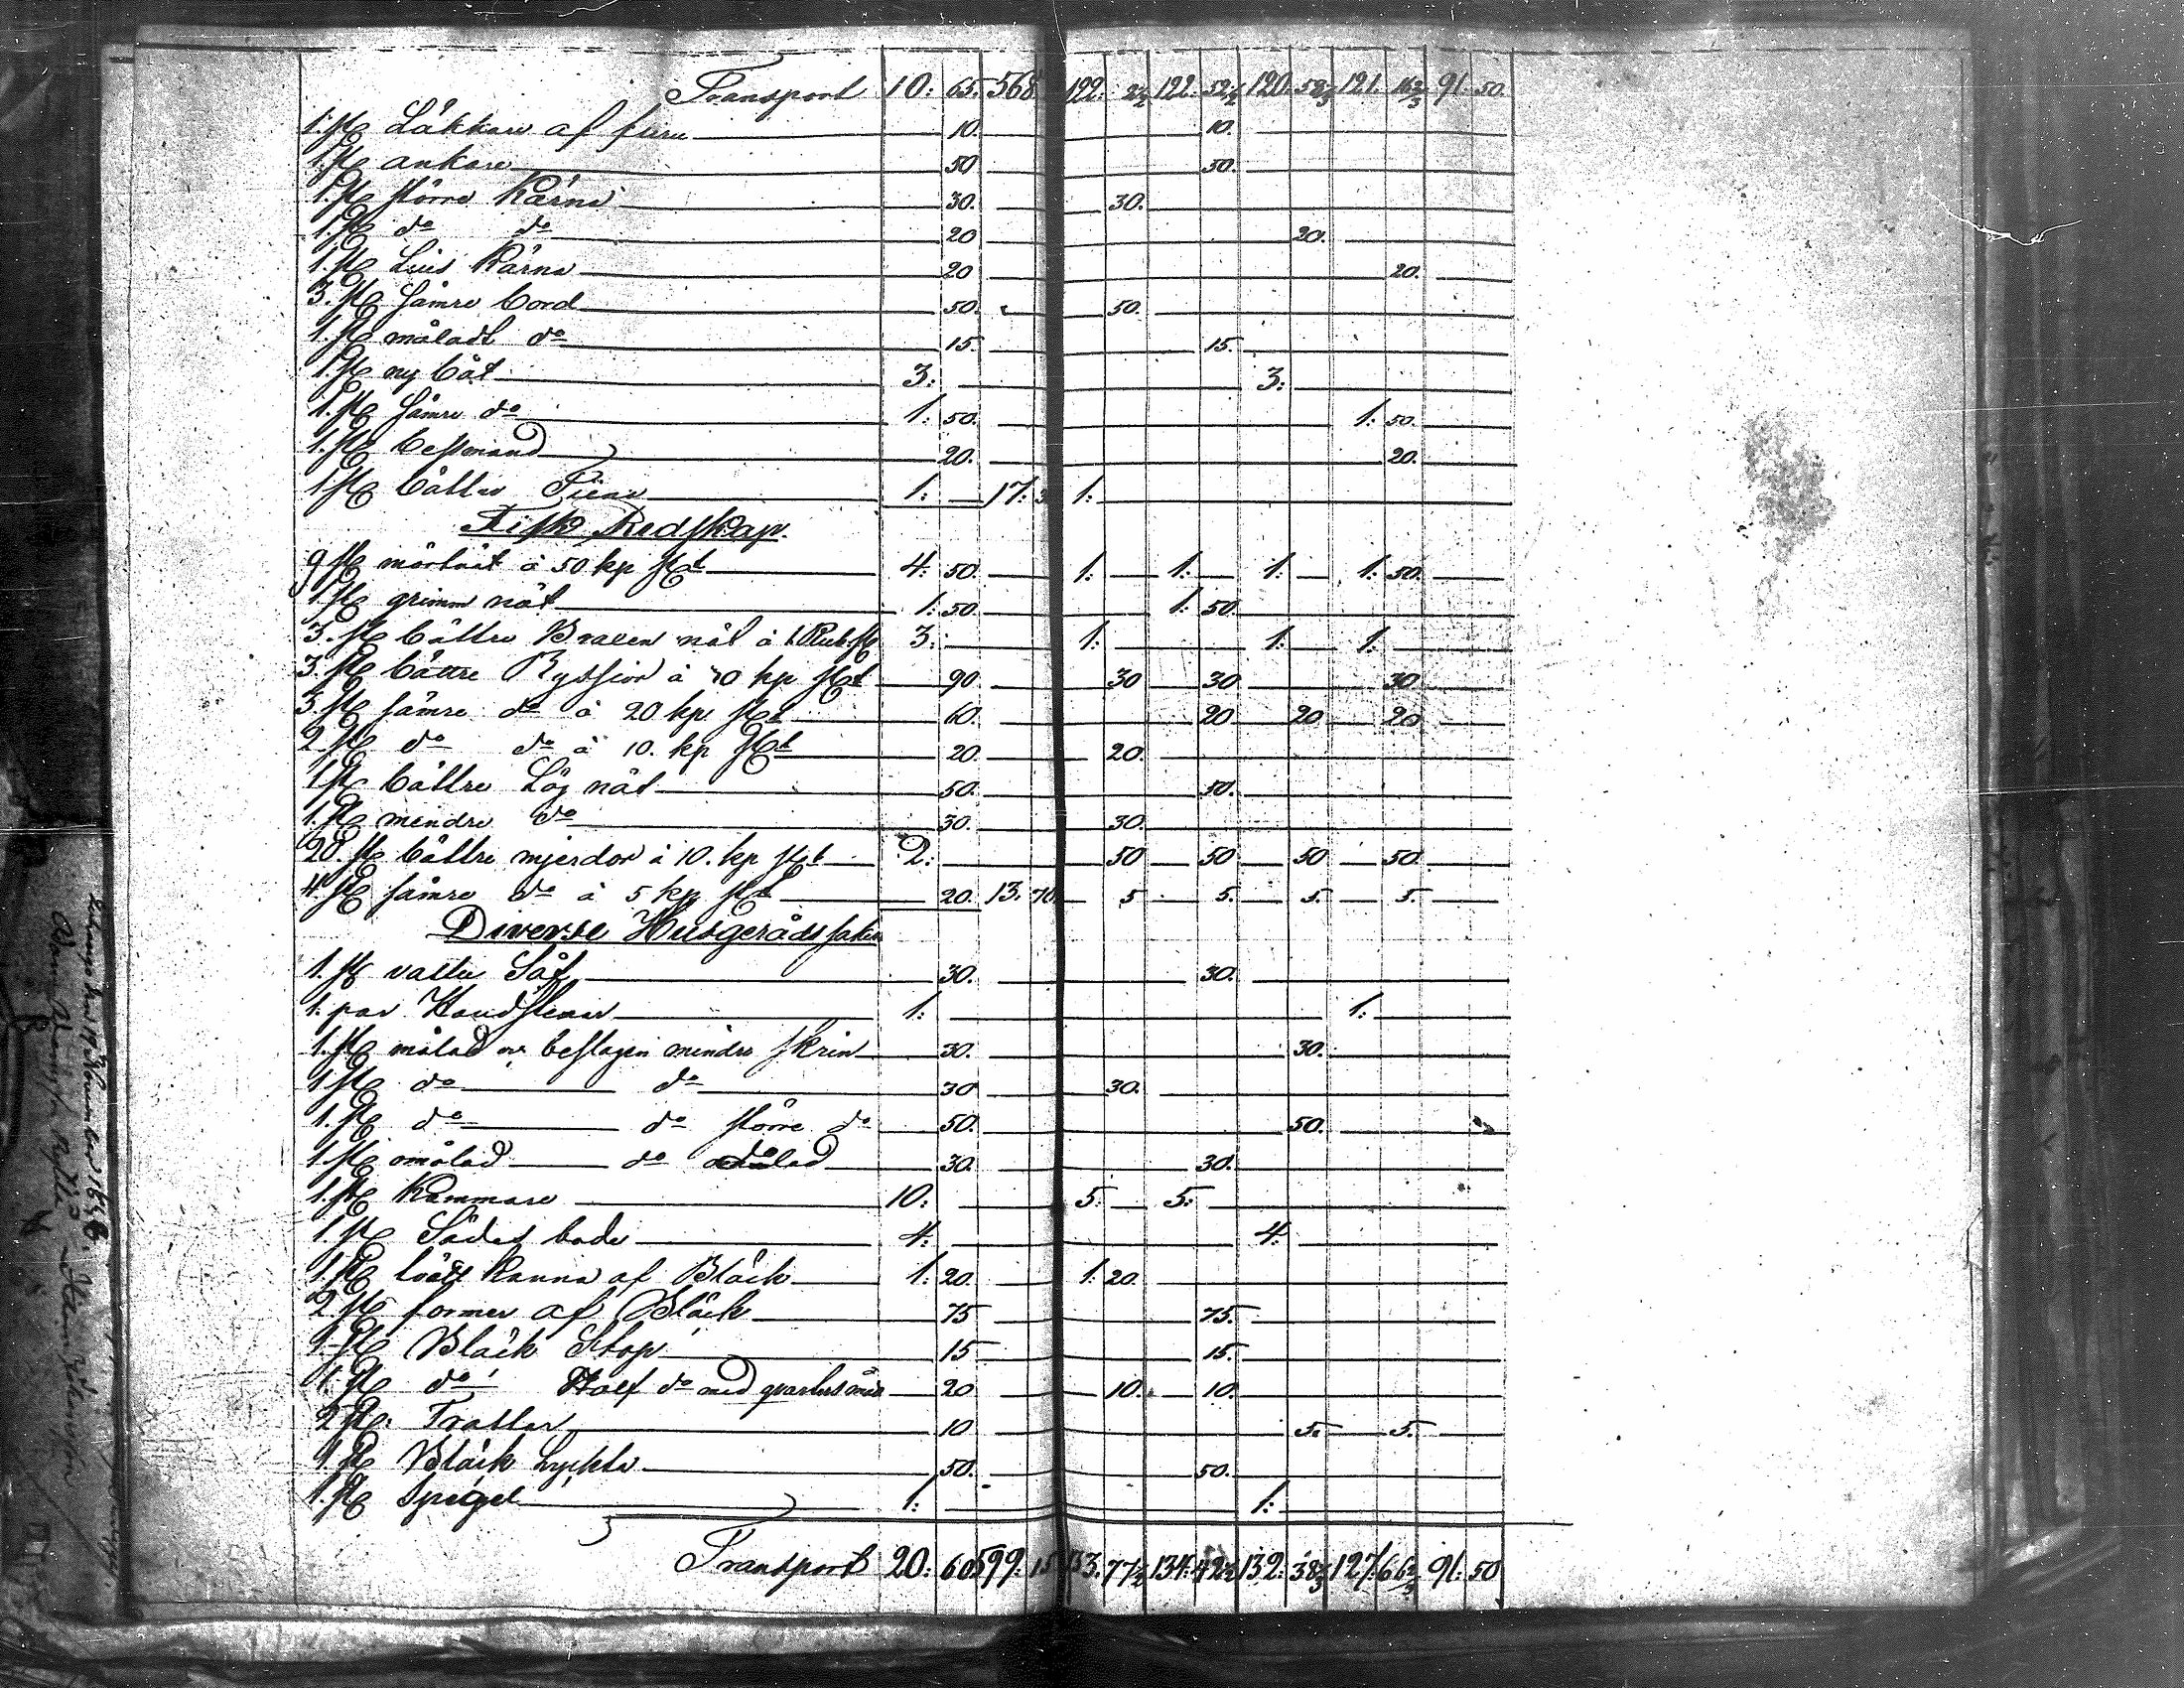 Transport 10: 65. 568 122. 2½ 122. 52½ 120. 58⅓ 121. 16⅔ 91. 50.
1. st Låkkare af furu 10. 10.
1. st ankare 50 50.
1. st större Kärna 30. 30.
1. st do do 20 20.
1. st Kärna 20 20.
3. st sämre bord 50. 50.
1. st måladt do 15. 15.
1. st ny båt 3: 3:
1. st sämre do 1: 50. 1: 50.
1. st bessmand 20. 20.
1 st bättre 1: 17: 1:
Fisk Redskap.
9 st mörtnät à 50 kp st 4: 50. 1: 1: 1: 1: 50.
1 st grimm nät 1: 50. 1: 50.
3. st bättre Braxen nät à 1 Rub. st 3: 1: 1: 1:
3. st bättre Ryssior à 30 kp st 90. 30 30 30
3 st sämre do à 20 kp st 60. 20 20 20
2 st do do à 10. kp st 20. 20.
1 st bättre Löj nät 50. 50.
1. st mendre do 30. 30.
20. st bättre mjerdor à 10. kp st 2: 50 50 50 50.
4. st sämre do à 5 kp st 20. 13. 70 5 5. 5. 5.
Diverse Husgeråds saker
1. st vatten Så 30. 30.
1. par Handstenar 1: 1.
1. st målad o beslagen mindre skrin 30. 30.
1 st do do 30 30.
1. st do do större do 50. 50.
1 st omålad do do 30. 30.
1. st Kammare 10: 5. 5:
1. st Sädes bode 4: 4:
1. st Kanna af Bläck 1: 20. 1: 20.
2 st former af Bläck 75 75.
1 st Bläck Stop 15 15.
1. st do Half do med qvarters mått 20 10. 10.
2 st Trattar 10 5. 5.
1. st Bläck Lykta 50. 50.
1. st Spegel 1: 1:
Transport 20: 60 599: 15 133. 77½ 134: 42½ 132: 38⅓ 127. 66⅔ 91. 50